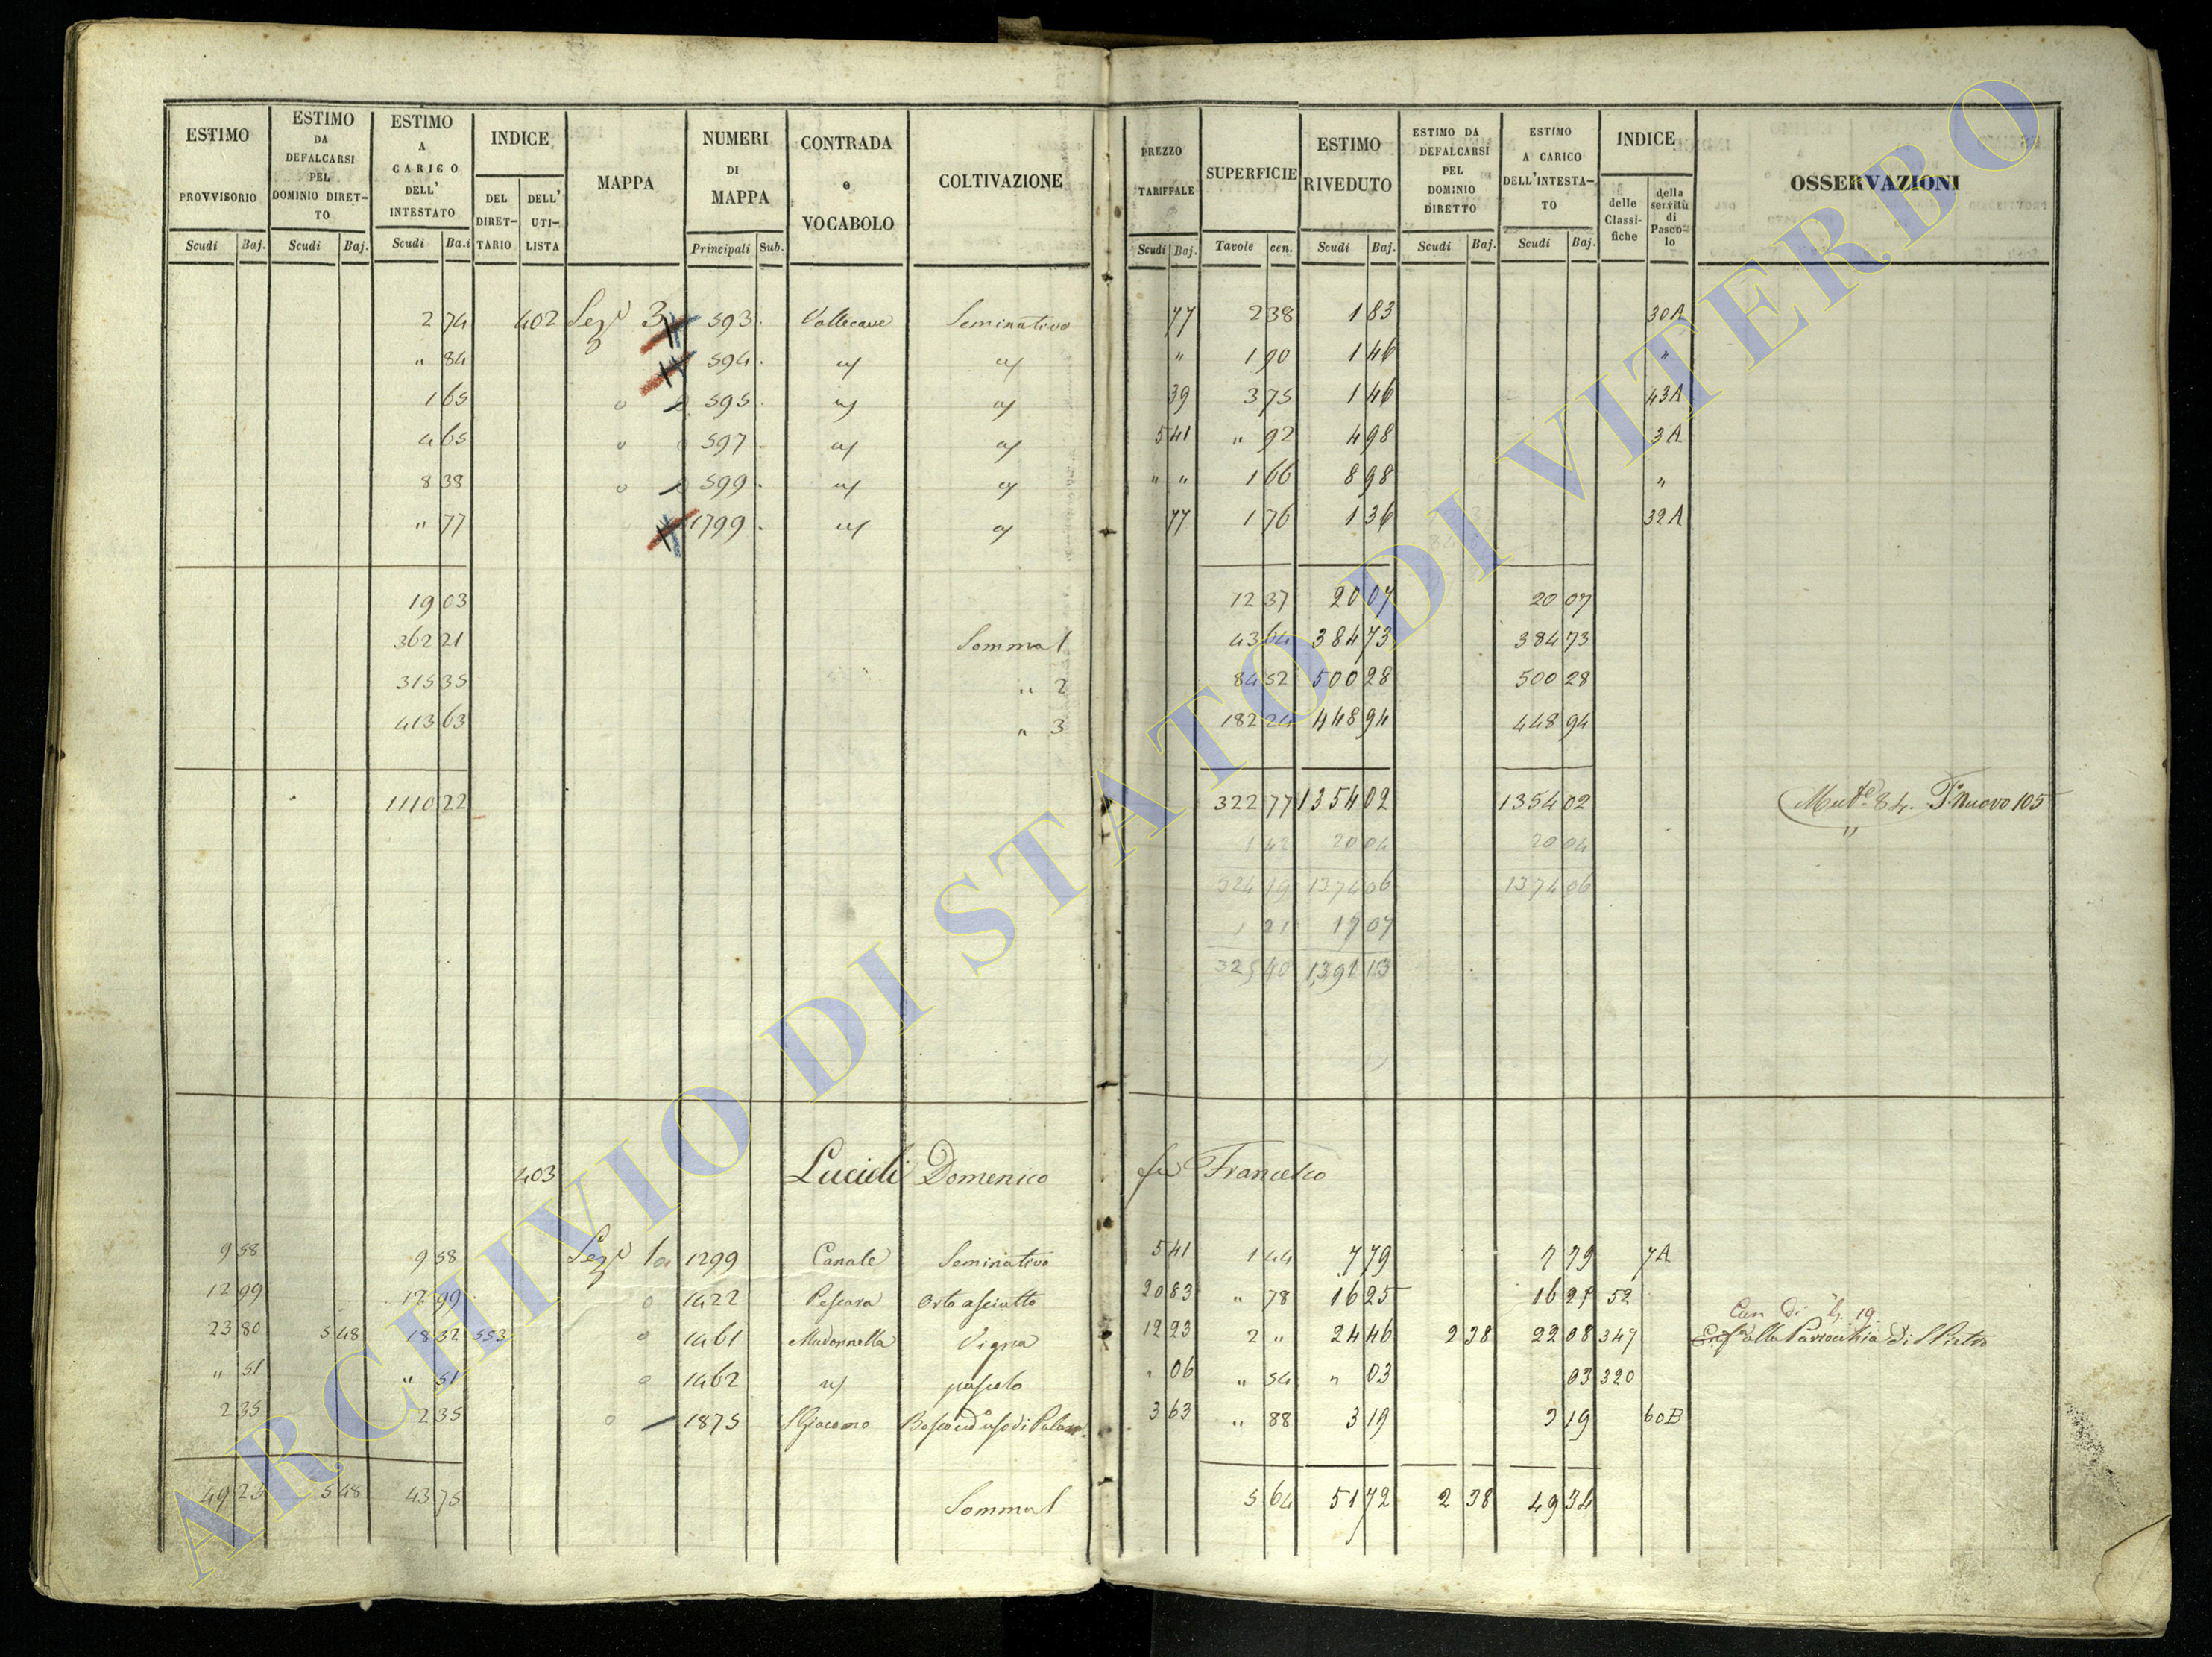 ESTIMO PROVVISORIO Scudi Baj.
ESTIMO DA DEFALCARSI PEL DOMINIO DIRETTO Scudi Baj.
ESTIMO A CARICO DELL' INTESTATO Scudi Ba.i
INDICE DEL DIRETTARIO DELL' UTILISTA
MAPPA
NUMERI DI MAPPA Principali Sub.
CONTRADA o VOCABOLO
COLTIVAZIONE
PREZZO TARIFFALE Scudi Baj.
SUPERFICIE Tavole cen.
ESTIMO RIVEDUTO Scudi Baj.
ESTIMO DA DEFALCARSI PEL DOMINIO DIRETTO Scudi Baj.
ESTIMO A CARICO DELL'INTESTATO Scudi Baj.
INDICE delle Classifiche della servitù di Pascolo
OSSERVAZIONI
2 74 402 Sez.e 3 593 Vallecave Seminativo 77 2 38 1 83 30A
" 84 594 " 1 90 1 46 "
1 65 595 39 3 75 1 46 43A
4 65 597 5 41 " 92 4 98 3A
8 38 599 " " 1 66 8 98 "
" 77 1799 77 1 76 1 36 32A
19 03 12 37 20 07 20 07
362 21 Somma 1 43 64 384 73 384 73
315 35 " 2 84 52 500 28 500 28
413 63 " 3 182 24 448 94 448 94
1110 22 322 77 1354 02 1354 02 Mut.e 84. P. Nuovo 105
1 42 20 04 20 04
324 19 1374 06 1374 06
1 21 17 07
325 40 1391 13
403 Lucioli Domenico fu Francesco
9 58 9 58 Sez.e 1a 1299 Canale Seminativo 5 41 1 44 7 79 7 79 7A
12 99 12 99 1422 Pescara Orto asciutto 20 83 " 78 16 25 16 25 52
23 80 5 48 18 32 553 1461 Madonnella Vigna 12 23 2 " 24 46 2 38 22 08 347 alla Parrocchia di S Pietro
" 51 " 51 1462 pascolo " 06 " 54 " 03 03 320
2 35 2 35 1875 S Giacomo Bosco ed uso di 3 63 " 88 3 19 3 19 60B
49 23 5 48 43 75 Somma 1 5 64 51 72 2 38 49 34
ARCHIVIO DI STATO DI VITERBO